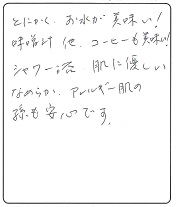 とにかく、お水が美味い!
味噌汁 他、コーヒーも美味い!
シャワー浴 肌に優しい
なめらか、アレルギー肌の
孫も安心です。